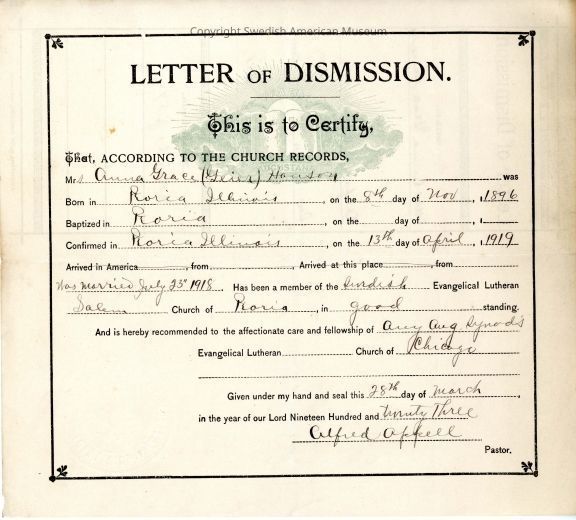 Copyright Swedish American Museum
LETTER OF DISMISSION.
This is to Certify,
That, ACCORDING TO THE CHURCH RECORDS,
Mrs Anna Grace (Geier) Hanson was
Born in Peoria Illinois, on the 8th day of Nov, 1896
Baptized in Peoria, on the day of , 1
Confirmed in Peoria Illinois, on the 13th day of April, 1919
Arrived in America , from Arrived at this place , from
Was married July 23rd 1918 Has been a member of the Swedish Evangelical Lutheran
Salem Church of Peoria, in good standing.
And is hereby recommended to the affectionate care and fellowship of Any Aug Synod's
Evangelical Lutheran Church of Chicago
Given under my hand and seal this 28th day of March,
in the year of our Lord Nineteen Hundred and twenty Three
Alfred Appell
Pastor.